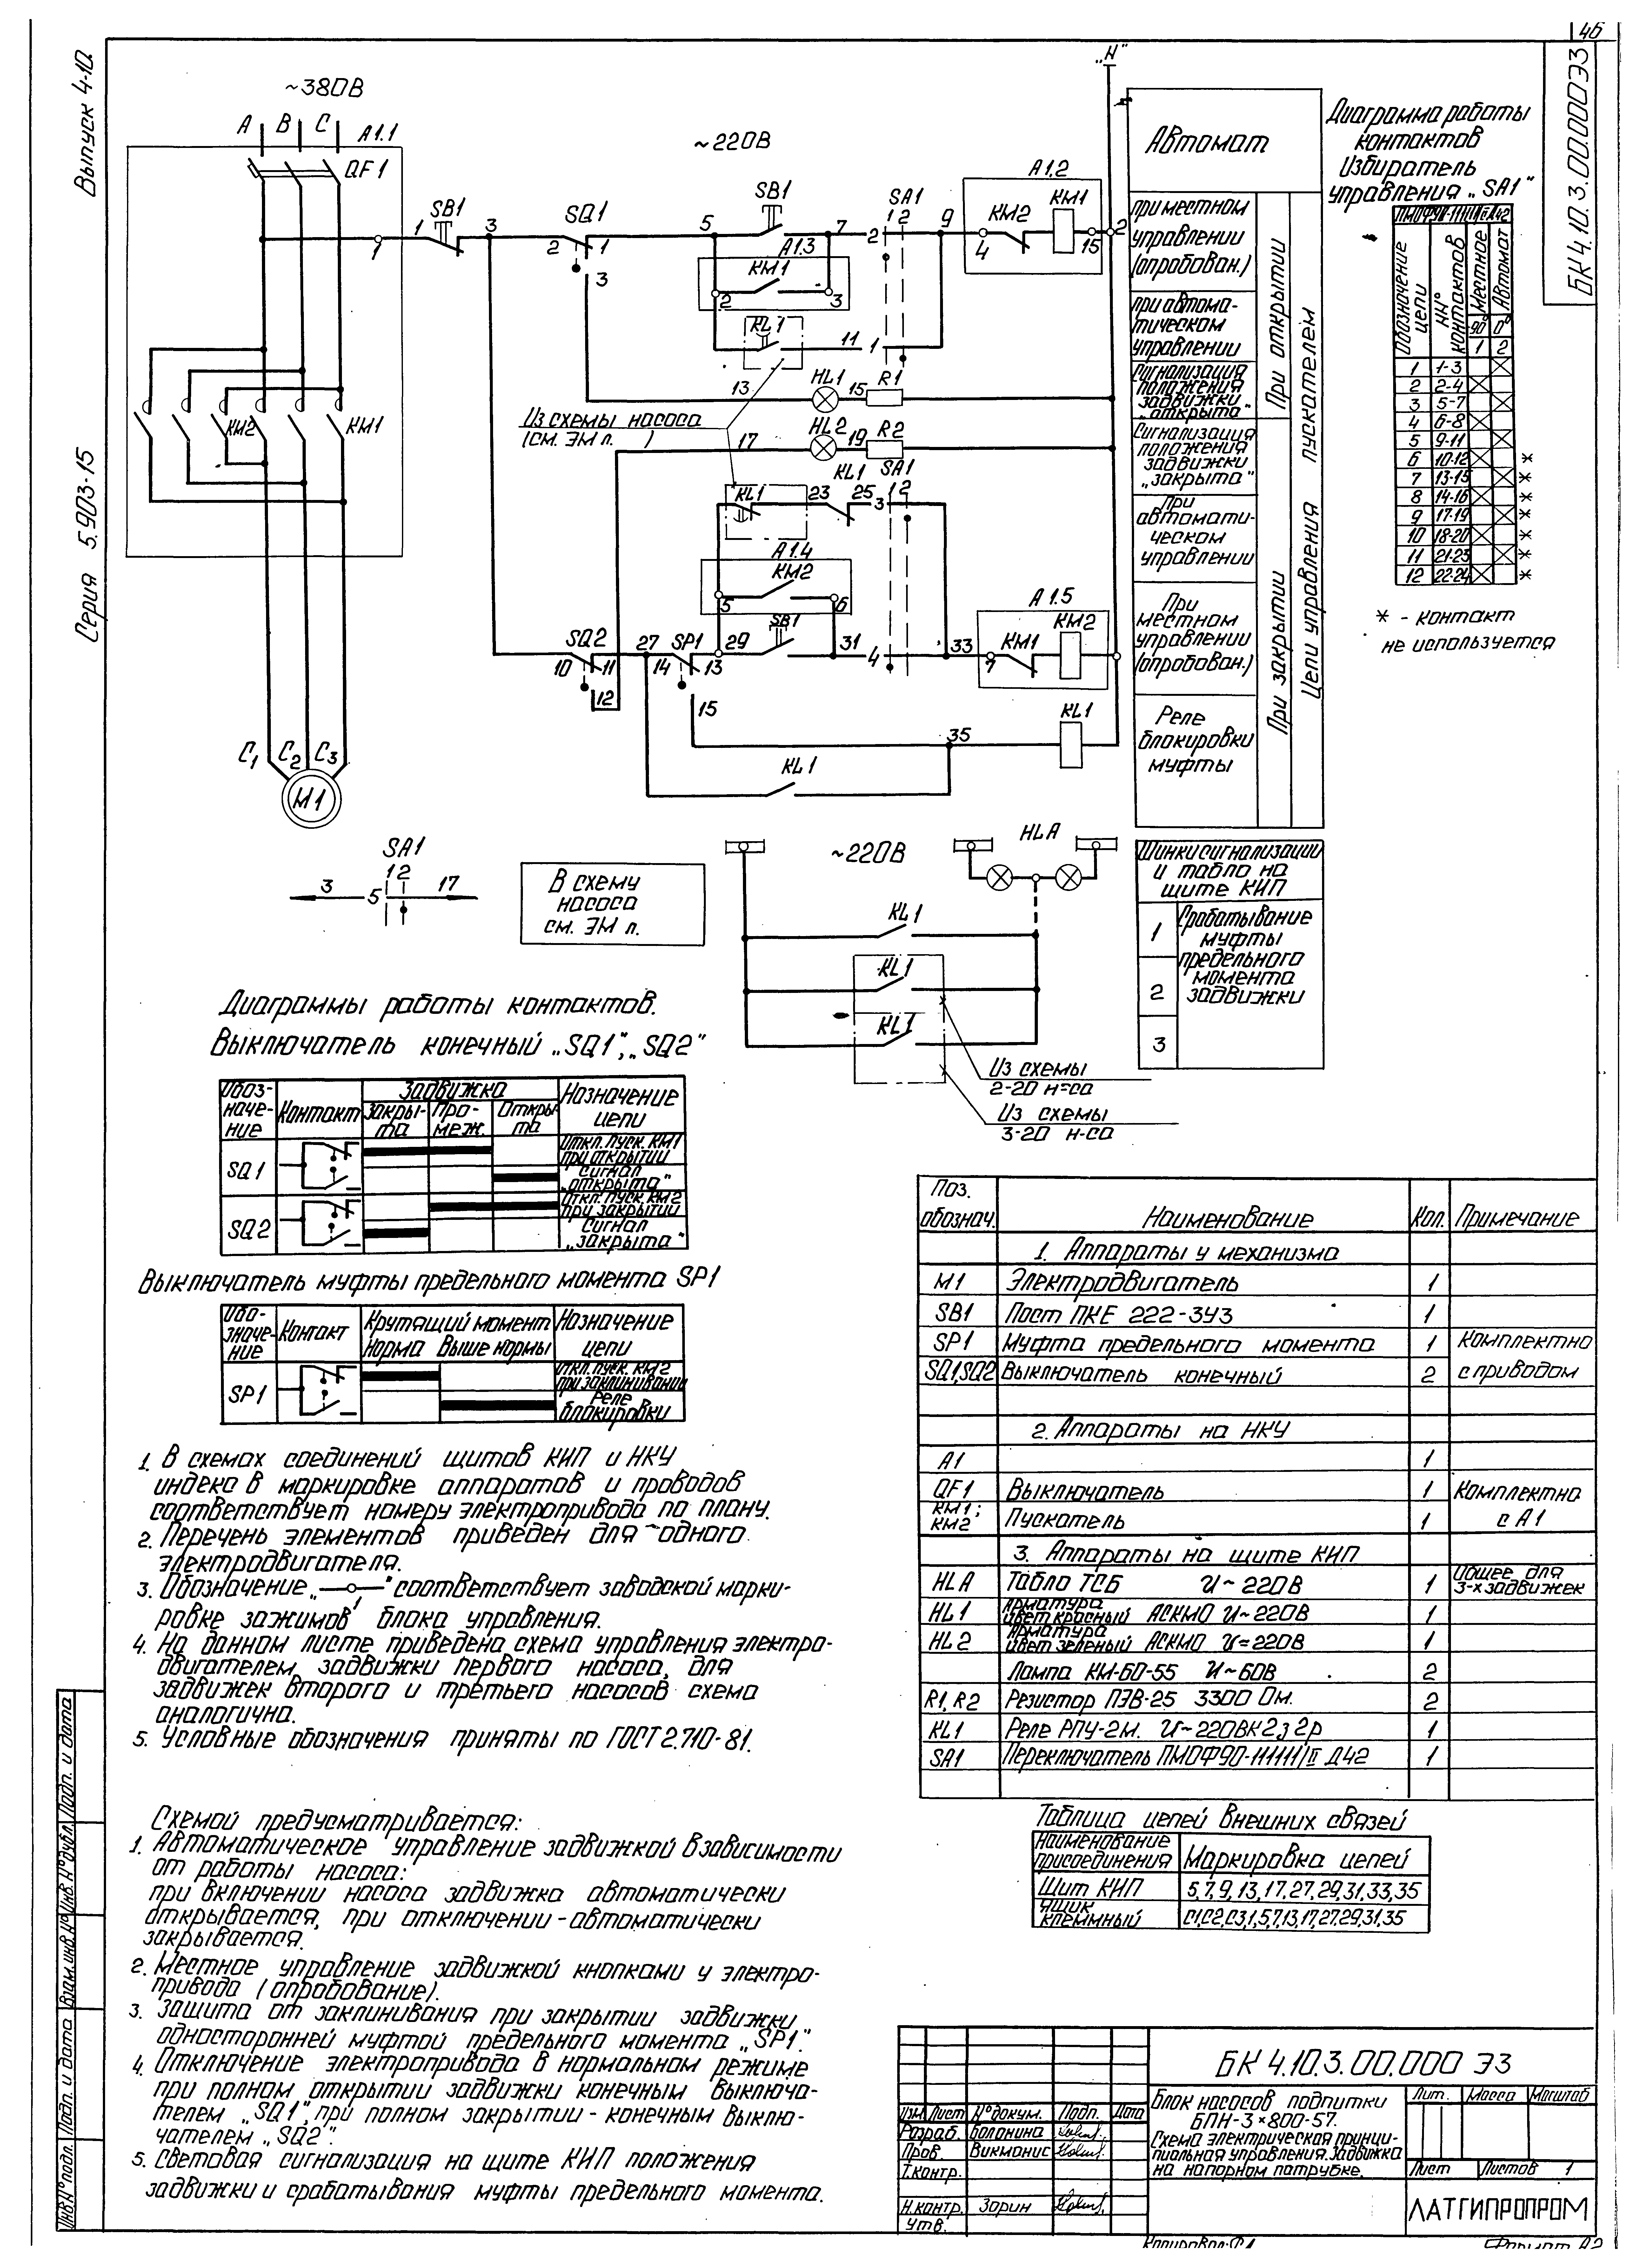 46
Выпуск 4-10.
Серия 5.903-15
БК4.10.3.00.000Э3
~380В
А В С
А1.1
QF1
~220В
"N"
1 SB1 3
1
SQ1
2 1
3
5 SB1 7
А1.3
KM1
2 3
KL1
11 1
SA1
1 2
2
9
А1.2
KM2 KM1
4 15 2
13 HL1 15 R1
Из схемы насоса
(см. ЭМ л. )
17 HL2 19 R2
KM2 KM1
KL1 23 KL1 25 3
SA1
1 2
А1.4
KM2
5 6
SQ2
10 11
12
27 SP1 29 SB1 31 4 33
14 13
15
А1.5
KM1 KM2
7
35
KL1
KL1
C1 C2 C3
М1
SA1
1 2
3 5 17
В схему
насоса
см. ЭМ л.
~220В
HLA
KL1
KL1
KL1
Из схемы
2-20 н-са
Из схемы
3-20 н-са
Автомат
При местном
управлении
(опробован.)
При автома-
тическом
управлении
Сигнализация
положения
задвижки
"открыта"
Сигнализация
положения
задвижки
"закрыта"
При
автомати-
ческом
управлении
При
местном
управлении
(опробован.)
Реле
блокировки
муфты
При открытии
При закрытии
Цепи управления пускателем
Шинки сигнализации
и табло на
щите КИП
1
2
3
Срабатывание
муфты
предельного
момента
задвижки
Диаграмма работы
контактов
Избиратель
управления "SA1"
ПМОФ90-111111/II Д42
Обозначение цепи
NN° контактов
Местное
Автомат
90° 0°
1 2
1 1-3
2 2-4
3 5-7
4 6-8
5 9-11
6 10-12 *
7 13-15 *
8 14-16 *
9 17-19 *
10 18-20 *
11 21-23 *
12 22-24 *
* - контакт
не используется
Диаграммы работы контактов.
Выключатель конечный "SQ1", "SQ2"
Обоз-
наче-
ние
Контакт
Задвижка
Закры-
та
Про-
меж.
Откры-
та
Назначение
цепи
SQ1
Откл. пуск. КМ1
при открытии
Сигнал
"открыта"
SQ2
Откл. пуск. КМ2
при закрытии
Сигнал
"закрыта"
Выключатель муфты предельного момента SP1
Обо-
значе-
ние
Контакт
Крутящий момент
Норма Выше нормы
Назначение
цепи
SP1
Откл. пуск. КМ2
при заклинивании
Реле
блокировки
1. В схемах соединений щитов КИП и НКУ
индекс в маркировке аппаратов и проводов
соответствует номеру электропривода по плану.
2. Перечень элементов приведен для одного
электродвигателя.
3. Обозначение "—o—" соответствует заводской марки-
1
ровке зажимов блока управления.
4. На данном листе приведена схема управления электро-
двигателем задвижки первого насоса, для
задвижек второго и третьего насосов схема
аналогична.
5. Условные обозначения приняты по ГОСТ 2.710-81.
Схемой предусматривается:
1. Автоматическое управление задвижкой в зависимости
от работы насоса:
при включении насоса задвижка автоматически
открывается, при отключении - автоматически
закрывается.
2. Местное управление задвижкой кнопками у электро-
привода (опробование).
3. Защита от заклинивания при закрытии задвижки
односторонней муфтой предельного момента "SP1".
4. Отключение электропривода в нормальном режиме
при полном открытии задвижки конечным выключа-
телем "SQ1", при полном закрытии - конечным выклю-
чателем "SQ2".
5. Световая сигнализация на щите КИП положения
задвижки и срабатывания муфты предельного момента.
Поз.
обознач.
Наименование Кол. Примечание
1. Аппараты у механизма
М1 Электродвигатель 1
SB1 Пост ПКЕ 222-3У3 1
SP1 Муфта предельного момента 1 Комплектно
SQ1,SQ2 Выключатель конечный 2 с приводом
2. Аппараты на НКУ
А1 1
QF1 Выключатель 1 Комплектно
КМ1;
КМ2 Пускатель 1 с А1
3. Аппараты на щите КИП
HLA Табло ТСБ U~220В 1 Общее для
3-х задвижек
HL1 Арматура
цвет красный АСКМО U~220В 1
HL2 Арматура
цвет зеленый АСКМО U=220В 1
Лампа КМ-60-55 U~60В 2
R1, R2 Резистор ПЭВ-25 3300 Ом. 2
KL1 Реле РПУ-2М. U~220В К 2з 2р 1
SA1 Переключатель ПМОФ90-111111/II Д42 1
Таблица цепей внешних связей
Наименование
присоединения
Маркировка цепей
Щит КИП 5,7,9,13,17,27,29,31,33,35
Ящик
клеммный С1,С2,С3,1,5,7,13,17,27,29,31,35
Инв.N°подл. Подп. и дата Взам.инв.N° Инв.N°дубл. Подп. и дата
БК 4.10.3.00.000 Э3
Изм. Лист N°докум. Подп. Дата
Разраб. Болонина
Пров. Викманис
Т.контр.
Н.контр. Зорин
Утв.
Блок насосов подпитки
БПН-3×800-57.
Схема электрическая принци-
пиальная управления. Задвижка
на напорном патрубке.
Лит. Масса Масштаб
Лист Листов 1
ЛАТГИПРОПРОМ
Копировал:
Формат А2